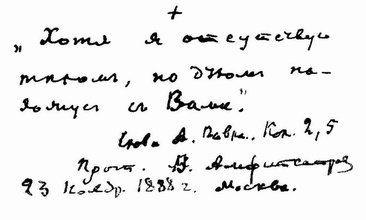 +
„Хотя я отсутствую
тѣломъ, но духомъ на-
хожусь съ Вами".
Слова А. Павла. Кол. 2, 5
Прот. В. Амфитеатров
23 Ноябр. 1888 г. Москва.